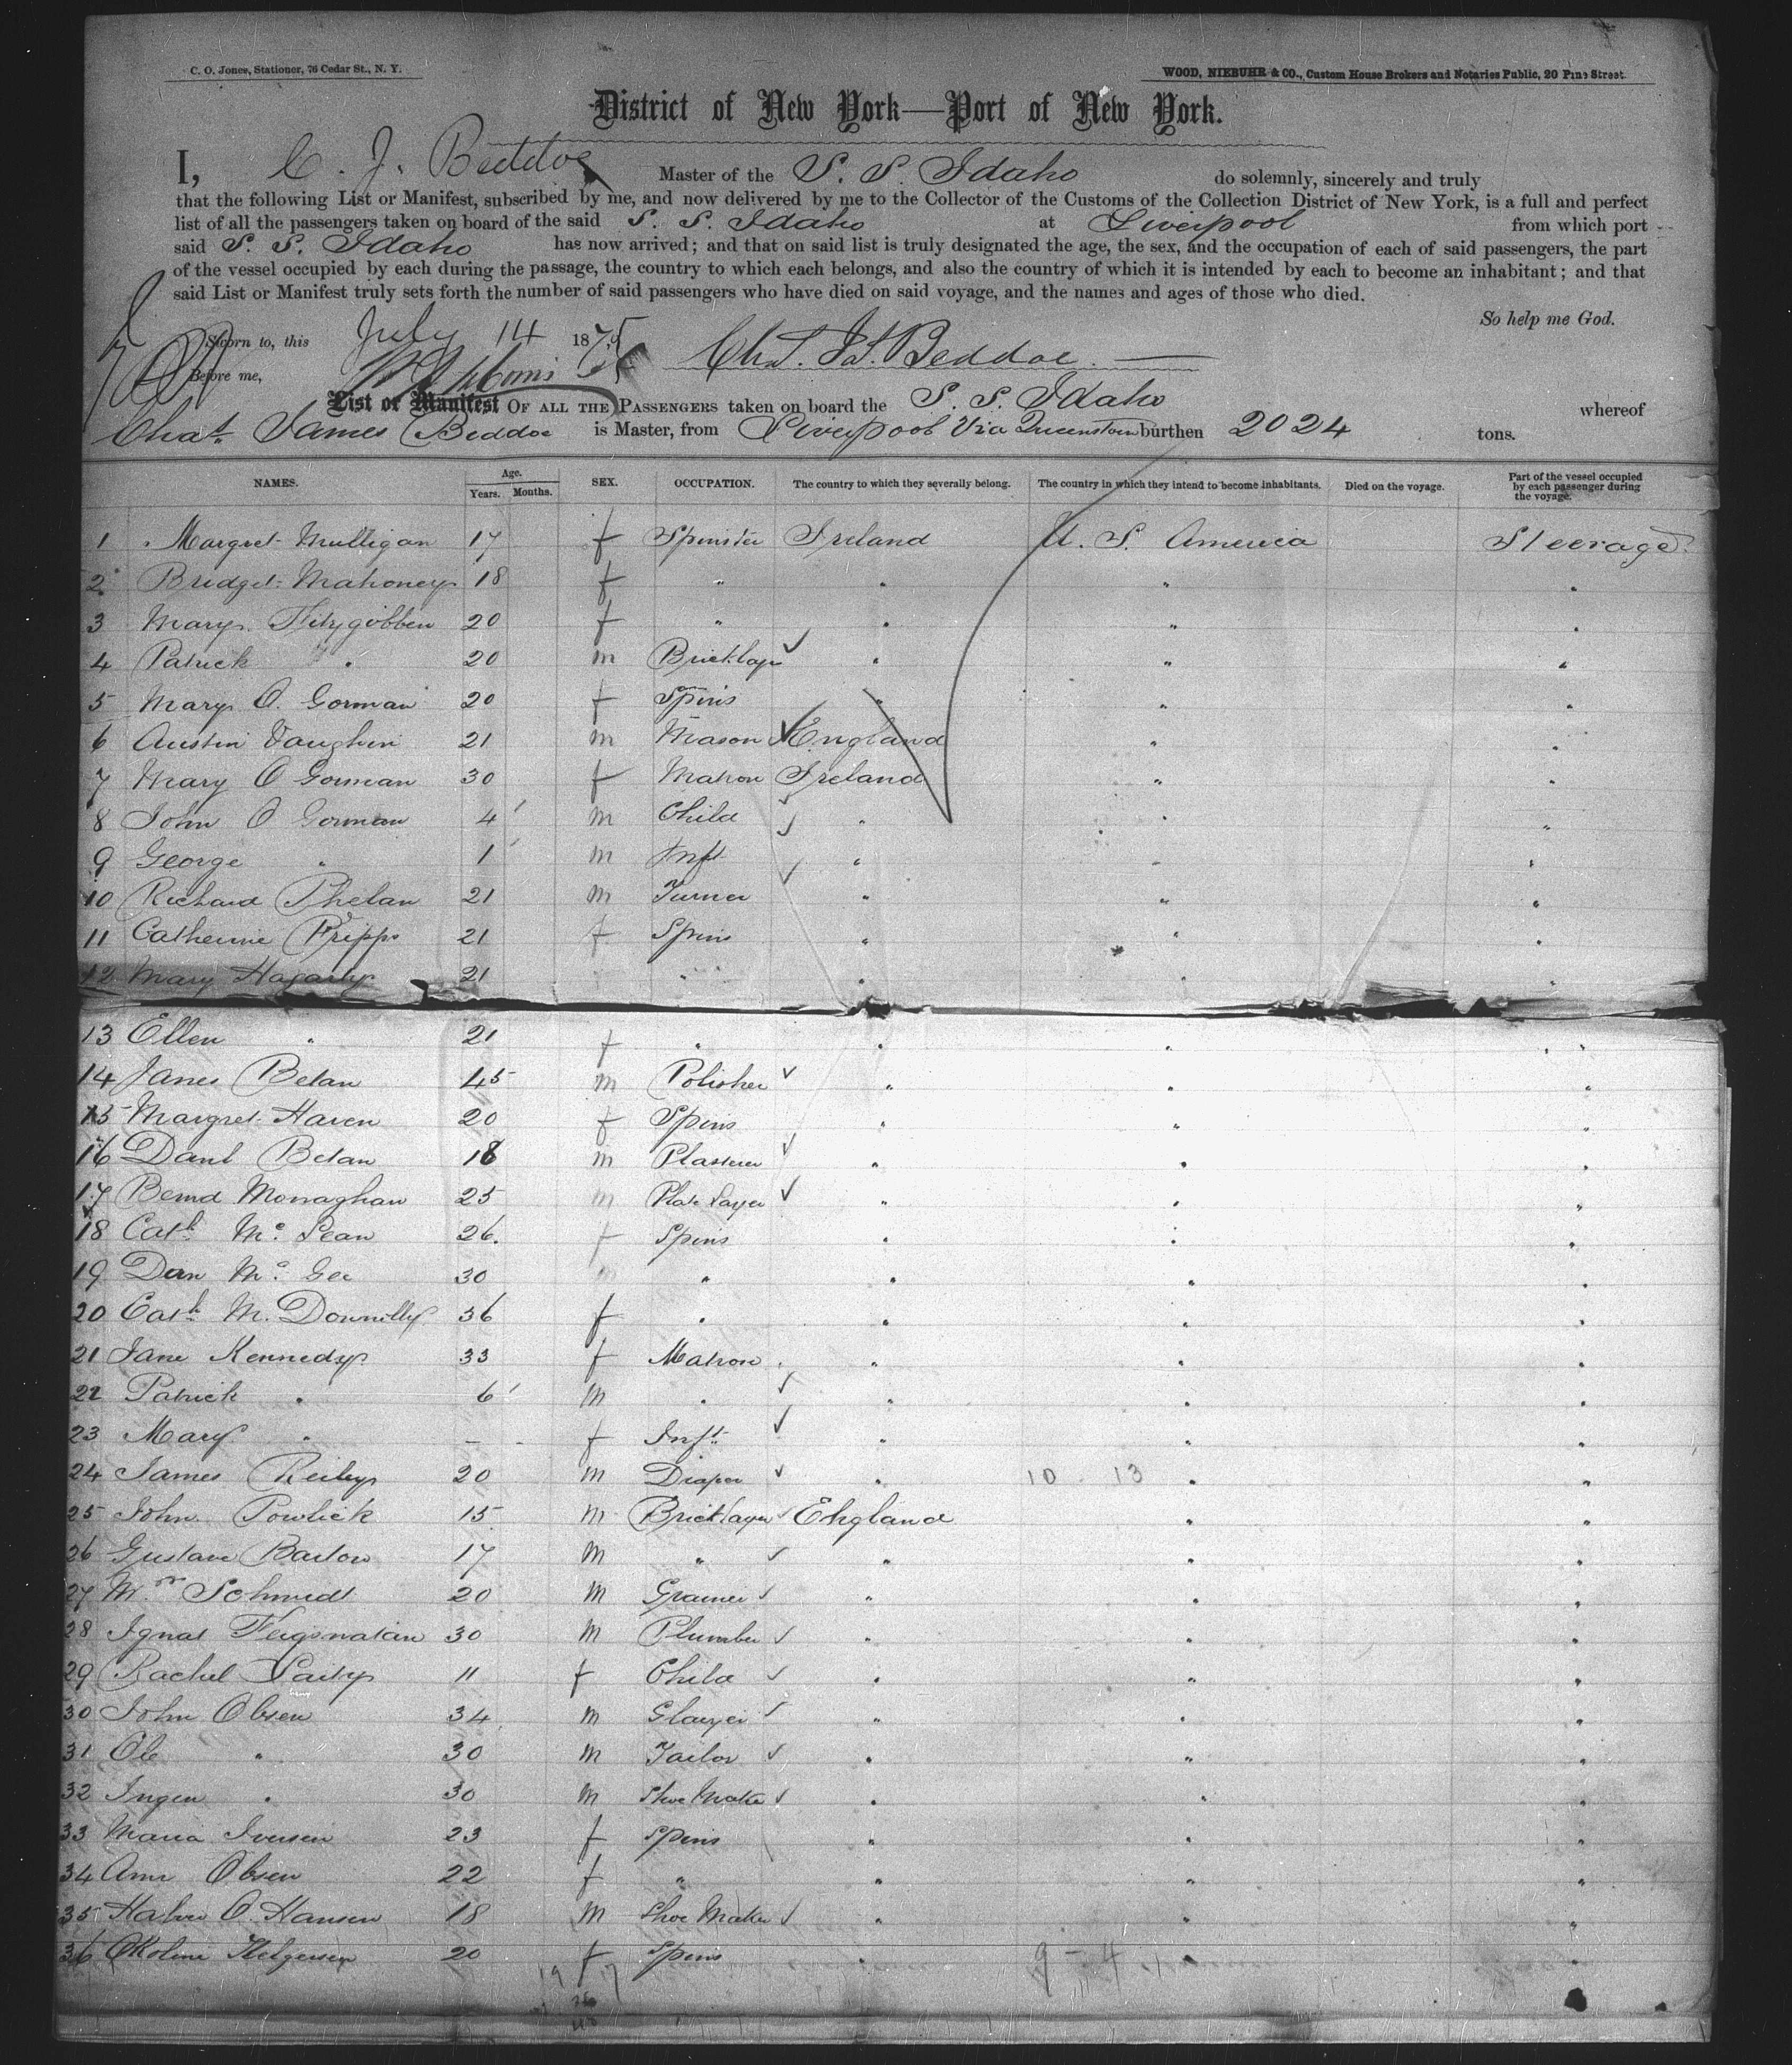 C. O. Jones, Stationer, 76 Cedar St., N. Y.
WOOD, NIEBUHR & CO., Custom House Brokers and Notaries Public, 20 Pine Street.
District of New York—Port of New York.
I, C. J. Beddoe Master of the S. S. Idaho do solemnly, sincerely and truly
that the following List or Manifest, subscribed by me, and now delivered by me to the Collector of the Customs of the Collection District of New York, is a full and perfect
list of all the passengers taken on board of the said S. S. Idaho at Liverpool from which port
said S. S. Idaho has now arrived; and that on said list is truly designated the age, the sex, and the occupation of each of said passengers, the part
of the vessel occupied by each during the passage, the country to which each belongs, and also the country of which it is intended by each to become an inhabitant; and that
said List or Manifest truly sets forth the number of said passengers who have died on said voyage, and the names and ages of those who died.
So help me God.
Sworn to, this July 14 1875 Chs. Js. Beddoe.
Before me,
List or Manifest OF ALL THE PASSENGERS taken on board the S. S. Idaho whereof
Chas. James Beddoe is Master, from Liverpool Via Queenstown burthen 2024 tons.
NAMES. Age. Years. Months. SEX. OCCUPATION. The country to which they severally belong. The country in which they intend to become inhabitants. Died on the voyage. Part of the vessel occupied by each passenger during the voyage.
1 Margret Mulligan 17 f Spinster Ireland U. S. America Steerage
2 Bridget Mahoney 18 f " " " "
3 Mary Fitzgibben 20 f " " " "
4 Patrick " 20 m Bricklayr " " "
5 Mary O. Gorman 20 f Spins " " "
6 Austin Vaughin 21 m Mason England " "
7 Mary O Gorman 30 f Matron Ireland " "
8 John O Gorman 4 m Child " " "
9 George " 1 m Inft " " "
10 Richard Phelan 21 m Turner " " "
11 Catherine Fripps 21 f Spins " " "
12 Mary Hagarty 21 " " " "
13 Ellen " 21 f " " " "
14 James Betan 45 m Polisher " " "
15 Margret Haven 20 f Spins " " "
16 Danl Betan 18 m Plasterer " " "
17 Bernd Monaghan 25 m Plate Layer " " "
18 Cath Mc Lean 26 f Spins " " "
19 Dan Mc Gee 30 m " " " "
20 Cath M. Donnilly 36 f " " " "
21 Jane Kennedy 33 f Matron " " "
22 Patrick " 6 m " " " "
23 Mary " - - f Inft " " "
24 James Reiley 20 m Draper " 10 13 " "
25 John Powlick 15 m Bricklayer England " "
26 Gustave Barlow 17 m " " " "
27 Wm Schmidt 20 m Grainer " " "
28 Ignat 30 m Plumber " " "
29 Rachel 11 f Child " " "
30 John Olsen 34 m Glazier " " "
31 Ole " 30 m Tailor " " "
32 Ingen " 30 m Shoe Maker " " "
33 Maria Iversen 23 f Spins " " "
34 Ann Olsen 22 f " " " "
35 Halvor O. Hansen 18 m Shoe Maker " " "
36 Helgersen 20 f Spins " 9 - 4 " "
19 17